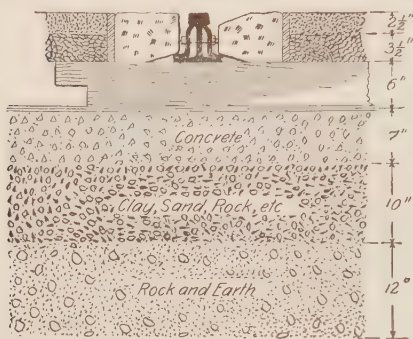 2½"
3½"
6"
Concrete
7"
Clay, Sand, Rock, etc
10"
Rock and Earth
12"